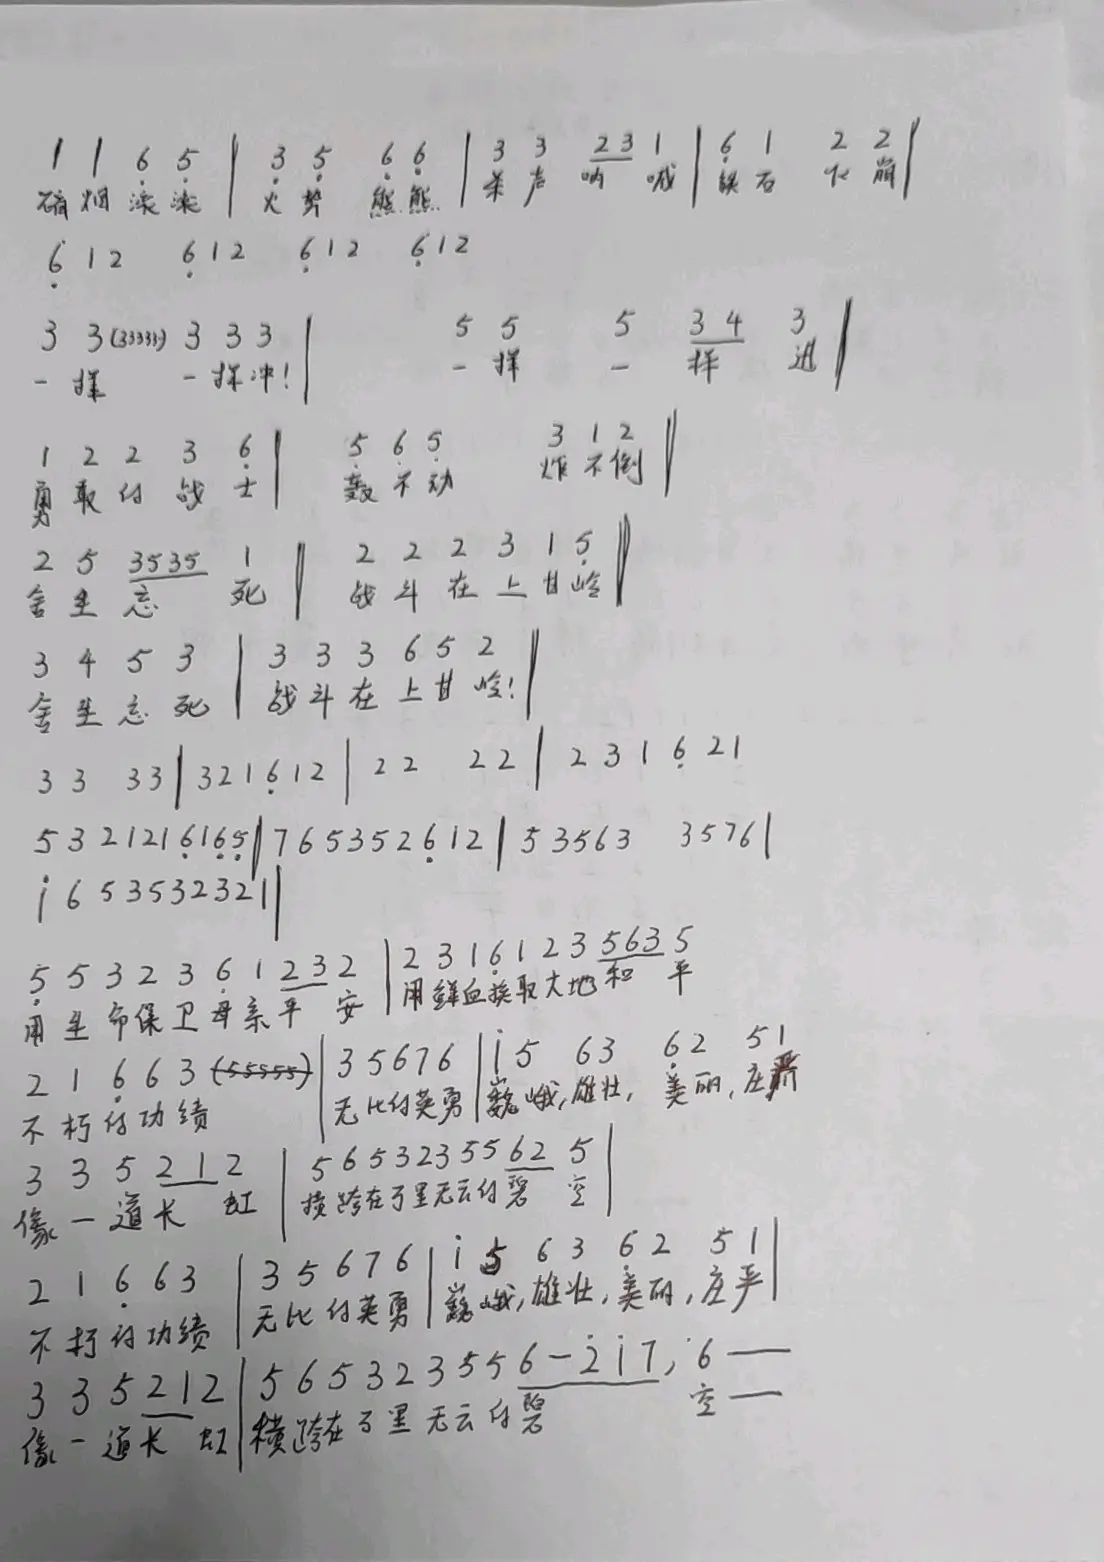 1 1 6 5 | 3 5 6 6 | 3 3 2 3 1 | 6 1 2 2 |
硝烟滚滚 火势熊熊 杀声呐喊 铁石 崩
6 1 2 6 1 2 6 1 2 6 1 2
3 3 (33333) 3 3 3 | 5 5 5 3 4 3 |
一择 一择冲! 一择 一择 进
1 2 2 3 6 | 5 6 5 3 1 2 |
勇敢付战士 轰不动 炸不倒
2 5 3535 1 | 2 2 2 3 1 5 |
舍生忘死 战斗在上甘岭
3 4 5 3 | 3 3 3 6 5 2 |
舍生忘死 战斗在上甘岭!
3 3 33 | 3 2 1 6 1 2 | 2 2 2 2 | 2 3 1 6 2 1
5 3 2 1 2 1 6 1 6 5 | 7 6 5 3 5 2 6 1 2 | 5 3 5 6 3 3 5 7 6 |
i 6 5 3 5 3 2 3 2 1 |
5 5 3 2 3 6 1 2 3 2 | 2 3 1 6 1 2 3 5 6 3 5
用生命保卫母亲平安 用鲜血换取大地和平
2 1 6 6 3 (55555) | 3 5 6 7 6 | i 5 6 3 6 2 5 1
不朽付功绩 无比付英勇 巍峨,雄壮,美丽,庄严
3 3 5 2 1 2 | 5 6 5 3 2 3 5 5 6 2 5 |
像一道长虹 横跨在万里无云付碧空
2 1 6 6 3 | 3 5 6 7 6 | i 5 6 3 6 2 5 1 |
不朽付功绩 无比付英勇 巍峨,雄壮,美丽,庄严
3 3 5 2 1 2 | 5 6 5 3 2 3 5 5 6 — 2 i 7, 6 —
像一道长虹 横跨在万里无云付碧 空 —